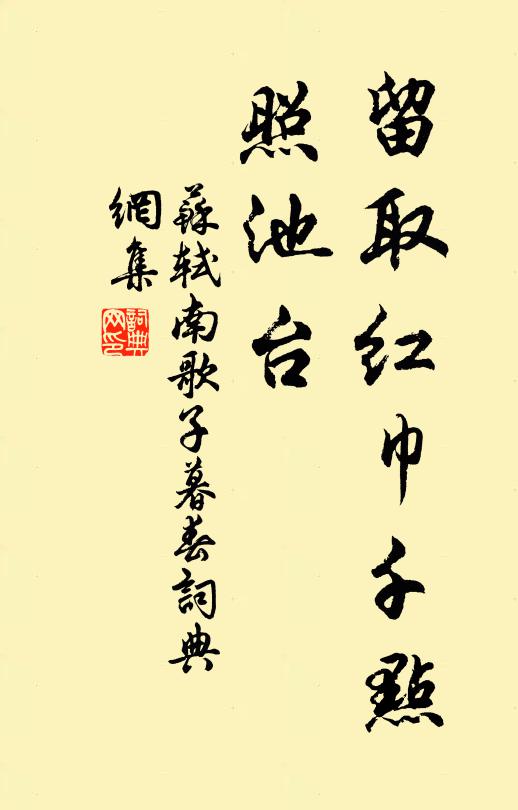 留取红巾千點
照池台
蘇軾南歌子暮春詞典
網集
詞典
网印